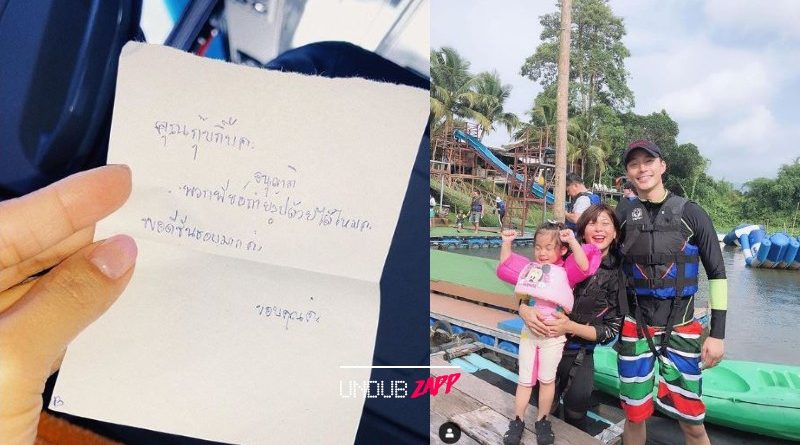 คุณกุ๊บกิ๊บคะ
อนุญาติ
พวกพี่ขอถ่ายรูปด้วยได้ไหมคะ
พอดีชื่นชอบมากค่ะ
ขอบคุณค่ะ
UNDUB ZAPP